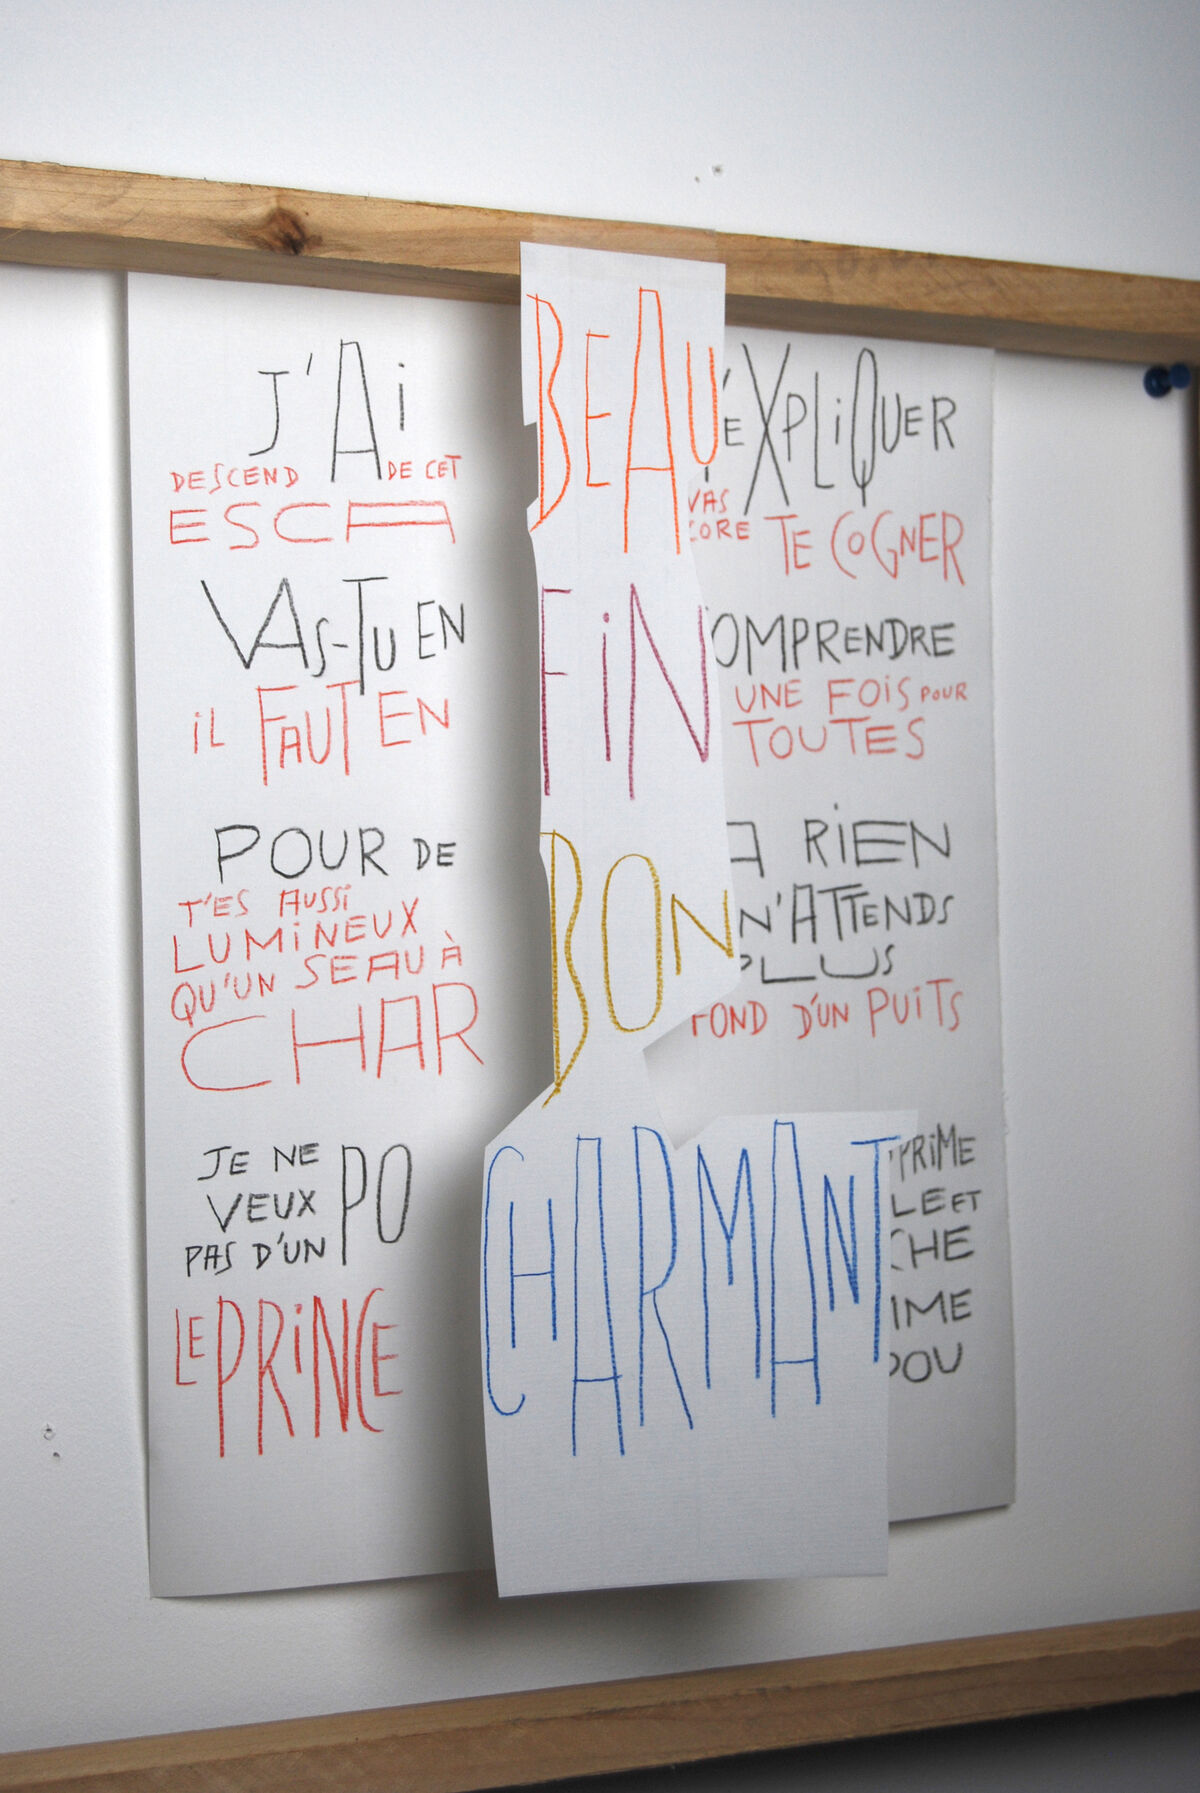 J'Ai
DESCEND DE CET
ESCA
VAS-TU EN
iL FAUT EN
POUR DE
T'ES AUSSi
LUMiNEUX
QU'UN SEAU À
CHAR
JE NE
VEUX
PAS D'UN PO
LE PRiNCE
BEAU
FiN
BON
CHARMANT
EXPLiQUER
VAS
CORE TE COGNER
OMPRENDRE
UNE FOiS POUR
TOUTES
A RiEN
N'ATTENDS
PLUS
FOND D'UN PUiTS
PRiME
LE ET
CHE
IME
POU